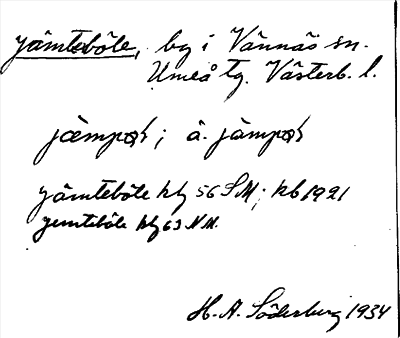 yämteböle, by i Vännäs sn.
Umeå tg. Västerb. l.
jämpər; ä. jämpər
yämteböle hfl 56 SM; kb 1921
yemteböle hfl 63 NM.
H. A. Söderberg 1934